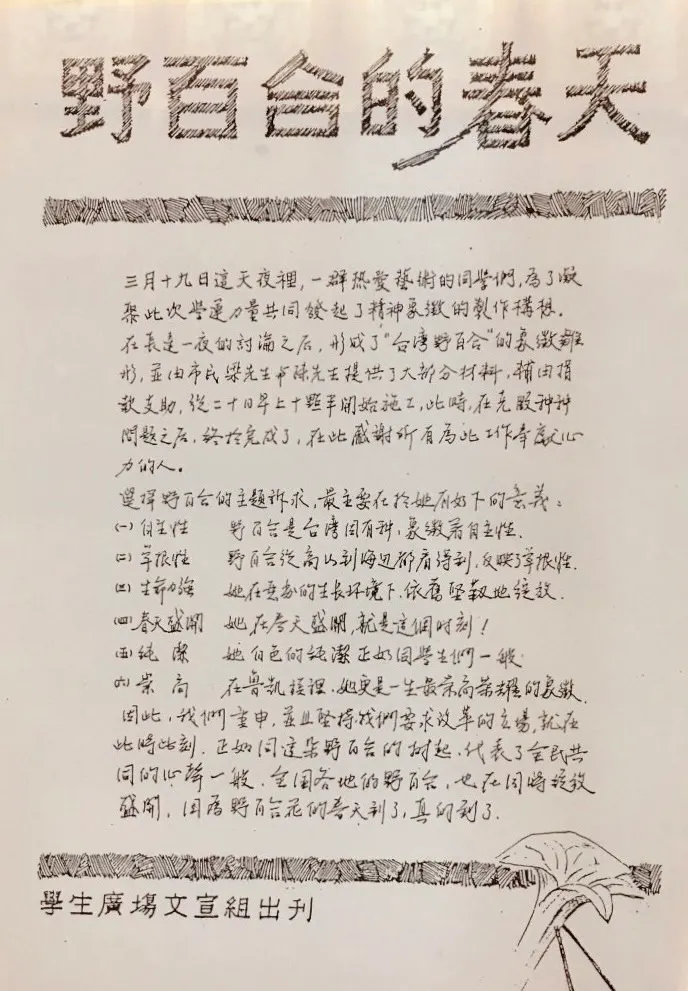 野百合的春天
三月十九日這天夜裡，一群热愛藝術的同學們，為了凝
聚此次學運力量共同發起了精神象徵的製作構想。
在長達一夜的討論之后，形成了"台湾野百合"的象徵雛
形，並由市民梁先生和陳先生提供了大部分材料，輔由捐
款支助，從二十日早上十點半開始施工，此時，在克服种种
問題之后，終於完成了，在此感謝所有為此工作奉献心
力的人。
選擇野百合的主題訴求，最主要在於她有如下的意義：
(一) 自主性 野百合是台湾固有种，象徵着自主性。
(二) 草根性 野百合從高山到海边都看得到，反映了草根性。
(三) 生命力強 她在惡劣的生長环境下，依舊堅韌地绽放。
(四) 春天盛開 她，在春天盛開，就是這個时刻！
(五) 純 潔 她白色的純潔正如同學生們一般
(六) 崇 高 在鲁凯族裡，她更是一生最崇高荣耀的象徵。
因此，我們重申，並且堅持我們要求改革的立場，就在
此時此刻，正如同這朵野百合的树起，代表了全民共
同的心聲一般，全国各地的野百合，也在同時绽放
盛開，因為野百合花的春天到了，真的到了。
學生廣場文宣組出刊